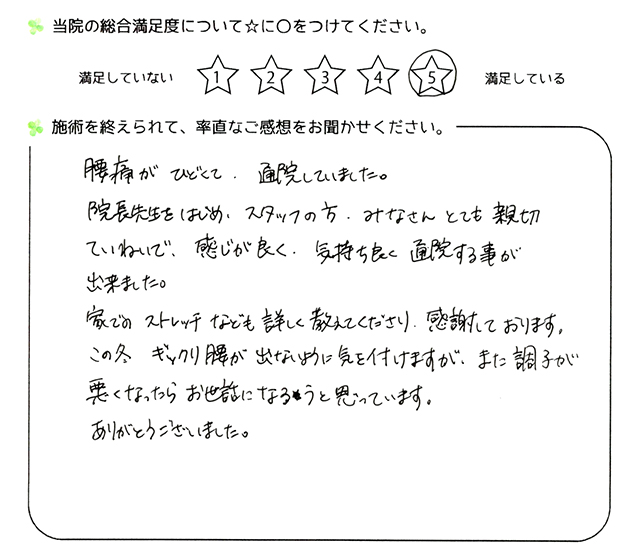 当院の総合満足度について☆に〇をつけてください。
満足していない 1 2 3 4 5 満足している
施術を終えられて、率直なご感想をお聞かせください。
腰痛が ひどくて、通院していました。
院長先生をはじめ、スタッフの方、みなさん とても 親切
ていねいで、感じが良く、気持ち良く 通院する事が
出来ました。
家での ストレッチ なども 詳しく 教えてくださり、感謝して おります。
この冬 ギックリ腰が 出ないように 気を付けますが、また 調子が
悪くなったら お世話になろうと 思っています。
ありがとうございました。